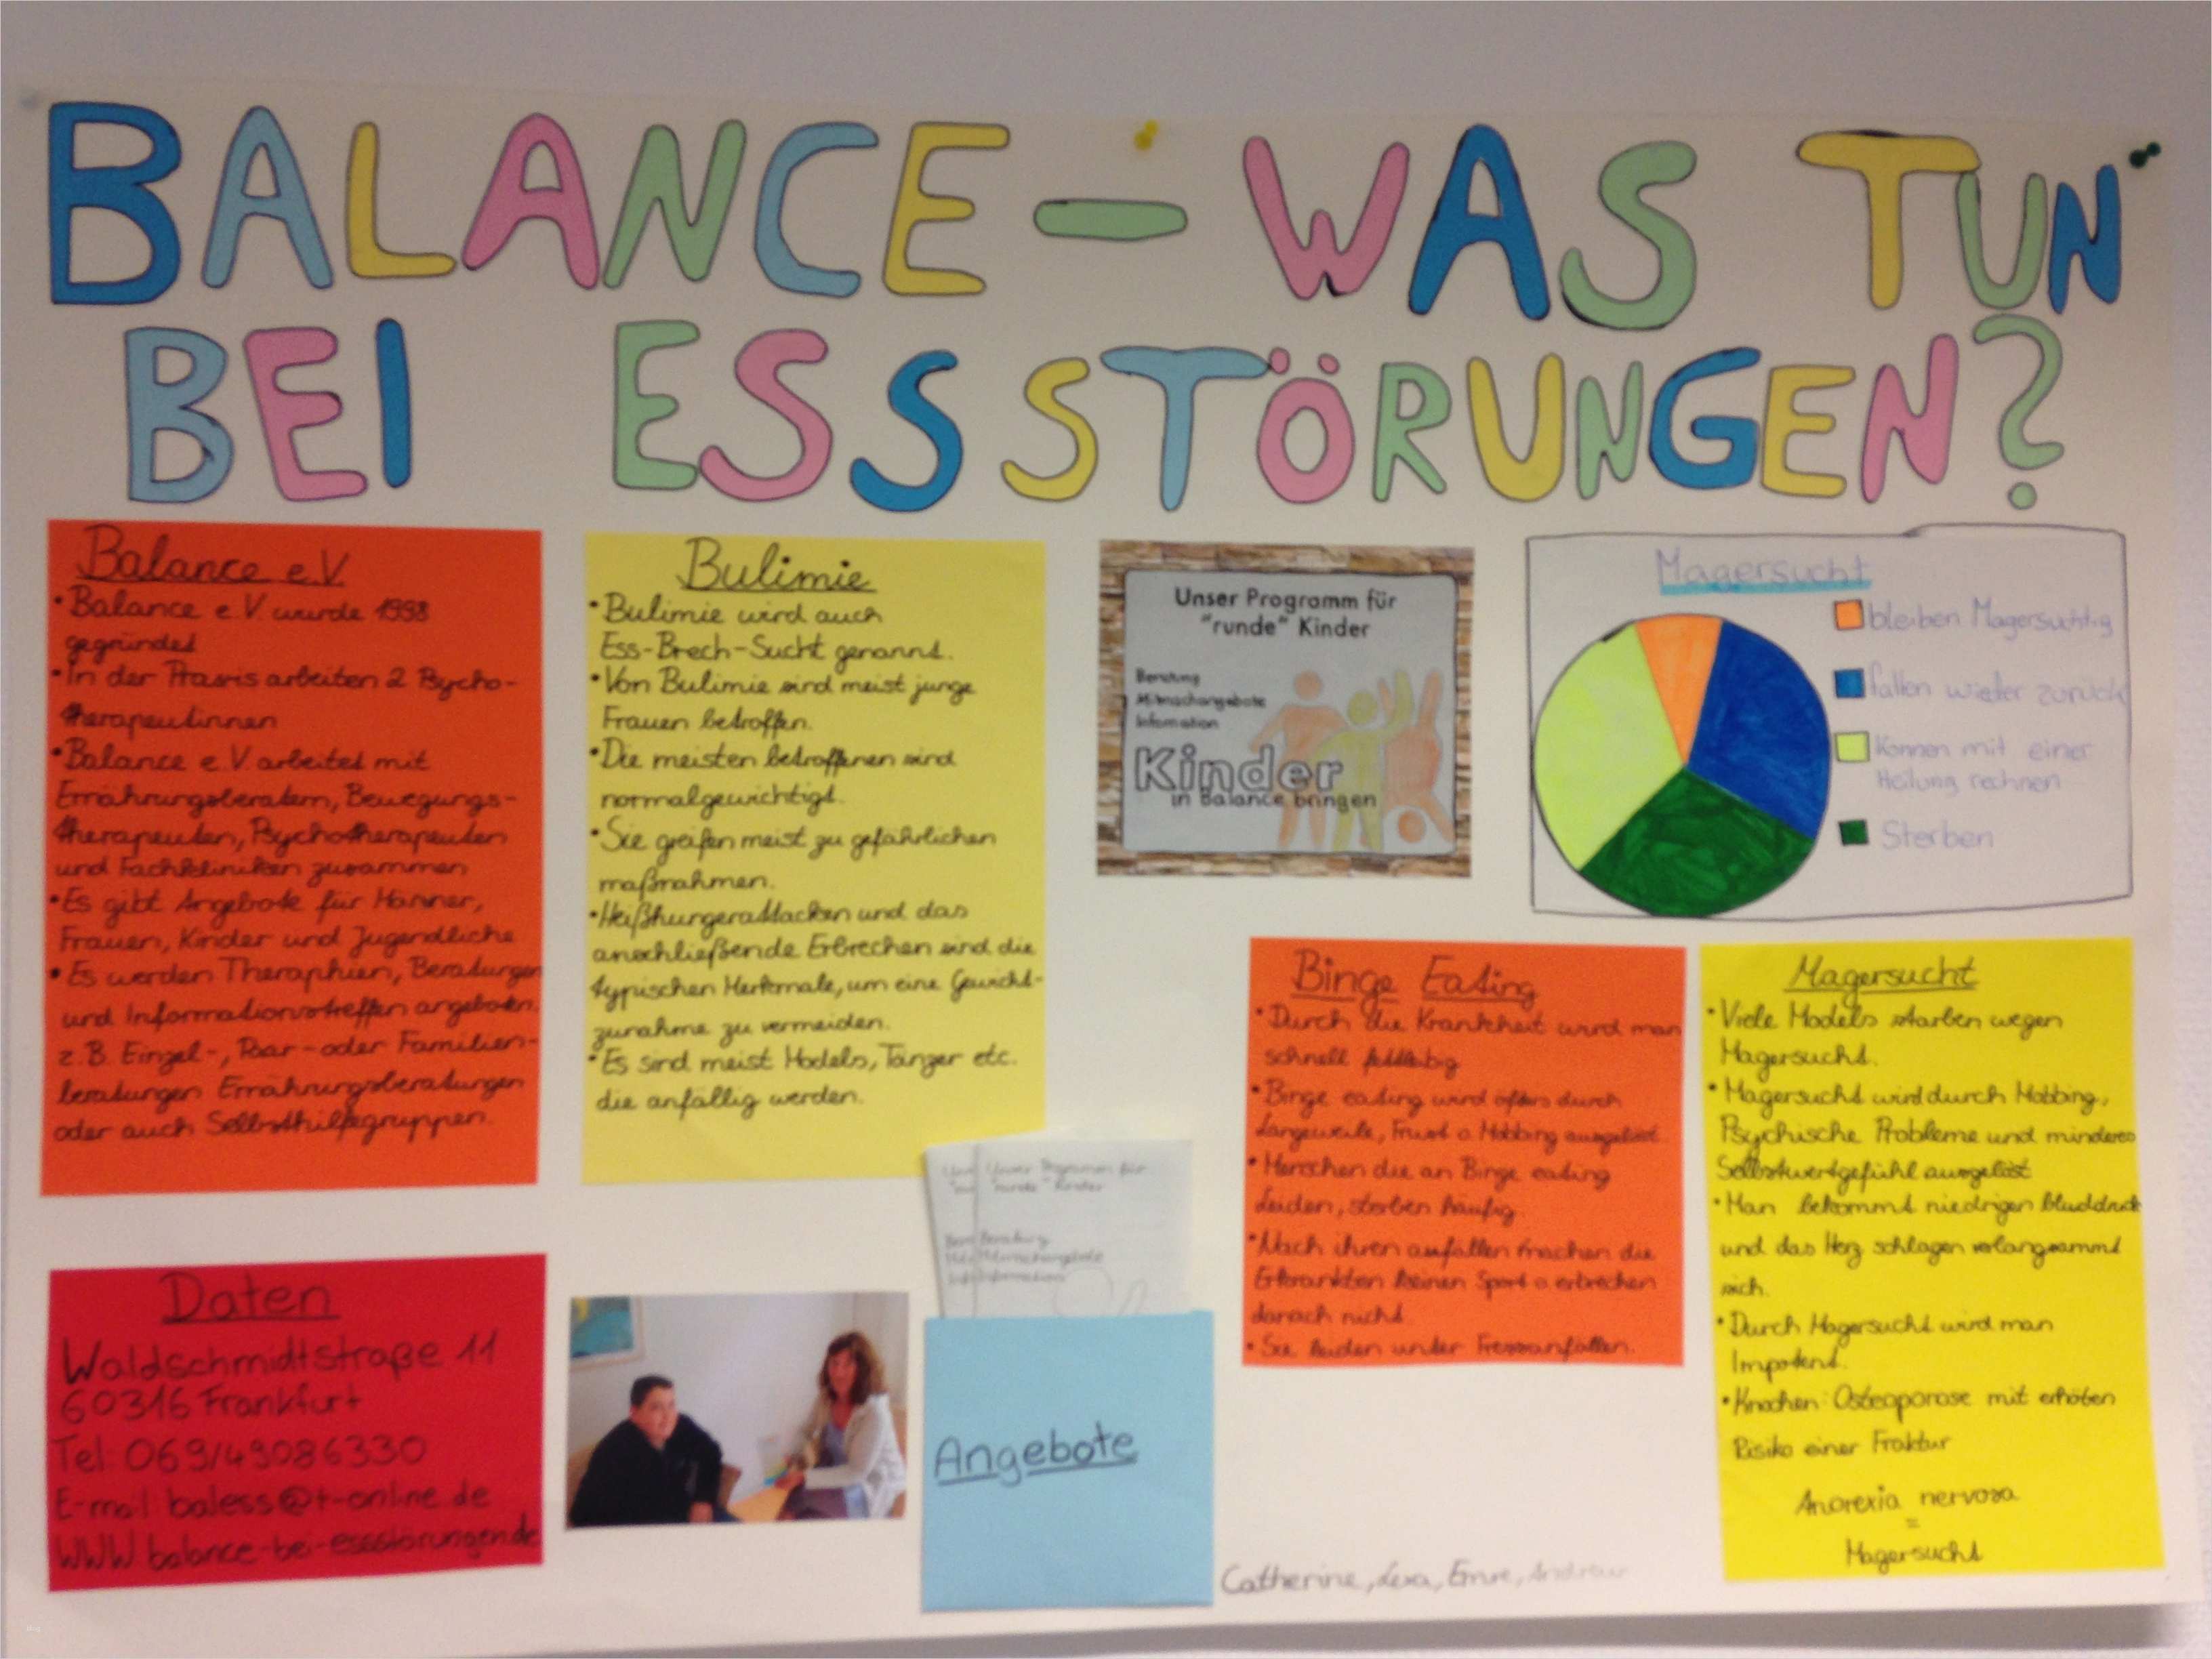 BALANCE – WAS TUN
BEI ESSSTÖRUNGEN?
Balance e.V
• Balance e.V. wurde 1998
gegründet
• In der Praxis arbeiten 2 Psycho-
therapeutinnen
• Balance e.V. arbeitet mit
Ernährungsberatern, Bewegungs-
therapeuten, Psychotherapeuten
und Fachkliniken zusammen
• Es gibt Angebote für Männer,
Frauen, Kinder und Jugendliche
• Es werden Theraphien, Beratungen
und Informationstreffen angeboten.
z.B. Einzel-, Paar- oder Familien-
beratungen Ernährungsberatungen
oder auch Selbsthilfegruppen.
Bulimie
• Bulimie wird auch
Ess-Brech-Sucht genannt.
• Von Bulimie sind meist junge
Frauen betroffen.
• Die meisten betroffenen sind
normalgewichtigt.
• Sie greifen meist zu gefährlichen
maßnahmen.
• Heißhungerattacken und das
anschließende Erbrechen sind die
typischen Merkmale, um eine Gewicht-
zunahme zu vermeiden.
• Es sind meist Models, Tänzer etc.
die anfällig werden.
Unser Programm für
"runde" Kinder
Beratung
Mitmachangebote
Information
Kinder
in Balance bringen
Magersucht
bleiben Magersüchtig
fallen wieder zurück
Können mit einer
Heilung rechnen
Sterben
Binge Eating
• Durch die Krankheit wird man
schnell fettleibig
• Binge eating wird öfters durch
Langeweile, Frust o. Mobbing ausgelöst.
• Menschen die an Binge eating
Leiden, sterben häufig.
• Nach ihren anfällen machen die
Erkrankten keinen Sport o. erbrechen
danach nicht.
• Sie leiden unter Fressanfällen.
Magersucht
• Viele Models starben wegen
Magersucht.
• Magersucht wird durch Mobbing,
Psychische Probleme und minderes
Selbstwertgefühl ausgelöst
• Man bekommt niedrigen bluddruck
und das Herz schlagen verlangsammt
sich.
• Durch Magersucht wird man
Impotent.
• Knochen: Osteoporose mit erhöten
Risiko einer Fraktur
Anorexia nervosa
=
Magersucht
Daten
Waldschmidtstraße 11
60316 Frankfurt
Tel: 069/49086330
E-mail: baless@t-online.de
WWW.balance-bei-essstörungen.de
Unser Programm für
"runde" Kinder
Beratung
Mitmachangebote
Information
Angebote
Catherine, Lexa, Emre,